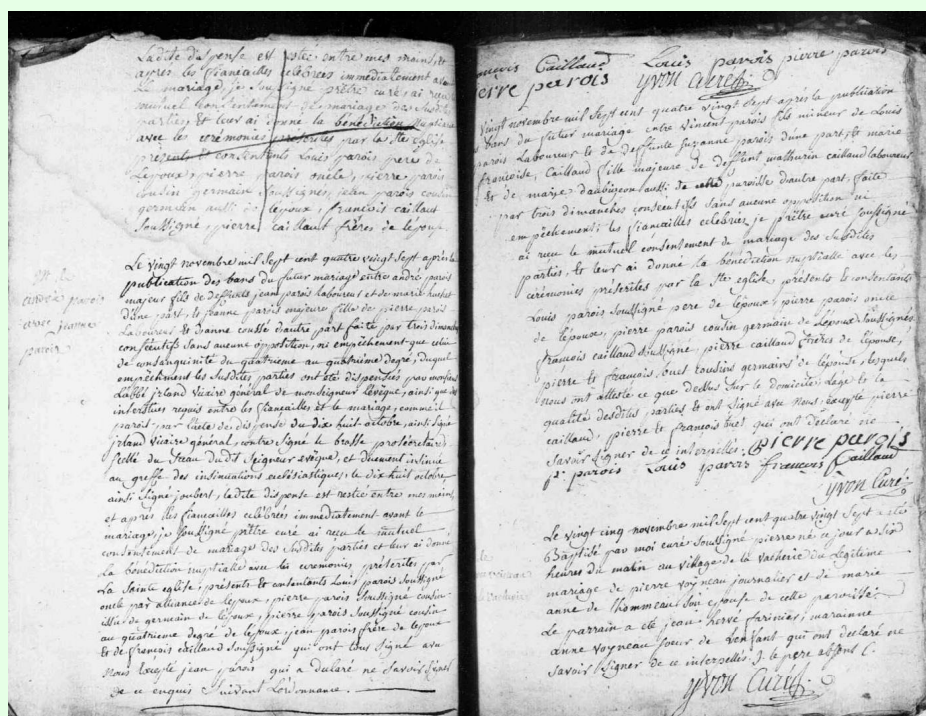 Ladite dispense est restée entre mes mains, et
après les fiancailles célébrées immediatement avant
Le mariage, je soussigné prêtre curé ai reçu
mutuel consentement de mariage des susdites
parties et leur ai donné la bénédiction nuptiale
avec les cerémonies présérites par la Ste église
présents et consentents Louis parois, pere de
Lépoux, pierre parois oncle, pierre parois
cousin germain soussignés, jean parois cousin
germain aussi de lépoux, francois caillaut
soussigné, pierre caillaut frères de lépouse
andré parois
avec jeanne
parois
Le vingt novembre mil sept cent quatre vingt sept après la
publication des bans du futur mariage entre andré parois
majeur fils de deffunts jean parois laboureur et de marie
d'une part, et jeanne parois majeure fille de pierre parois
Laboureur et d'anne cousse d'autre part faite par trois dimanches
consécutifs sans aucune opposition, ni empêchement que celui
de consanguinité du quatrième au quatrième degré, duquel
empêchement les susdites parties ont été dispensées par monsieur
L'abbé irland vicaire général de monseigneur L'évêque, ainsi que des
interstices requis entre les fiancailles et le mariage, comme il
paroit par lacte de dispense du dix huit octobre, ainsi signé
irland vicaire général, contre signé le brosse prosécrétaire
scellé du sceau dudit seigneur evêque, et duement insinué
au greffe des insinuations ecclésiastiques, le dix huit octobre
ainsi signé joubert, ladite dispense est restée entre mes mains
et après les fiancailles célébrées immediatement avant le
mariage, je soussigné prêtre curé ai reçu le mutuel
consentement de mariage des susdites parties et leur ai donné
la bénédiction nuptialle avec les cérémonies présérites par
La Sainte eglise, présents et consentants Louis parois soussigné
oncle par alliance de lépoux, pierre parois soussigné cousin
issu de germain de lépoux, pierre parois soussigné cousin
au quatrième degré de lépoux, jean parois frère de lepoux
et de francois caillaud soussigné qui ont tous signé avec
Nous excepté jean parois qui a déclaré ne savoir signer
de ce enquis suivant lordonnance.
francois Caillaud Louis parois pierre parois
pierre parois yvon curé
vingt novembre mil sept cent quatre vingt sept après la publication
des bans du futur mariage entre vincent parois fils mineur de Louis
parois Laboureur et de deffunte suzanne parois d'une part, et marie
françoise, Caillaud fille majeure de deffunt mathurin caillaud laboureur
et de marie daubigeon aussi de cette paroisse d'autre part, faite
par trois dimanches consécutifs sans aucune opposition ni
empêchement; les fiancailles célébrées, je prêtre curé soussigné
ai reçu le mutuel consentement de mariage des susdites
parties, et leur ai donné la bénédiction nuptialle avec les
cérémonies présérites par la Ste eglise, présents et consentants
Louis parois soussigné père de lépoux, pierre parois oncle
de lépoux, pierre parois cousin germain de lépoux soussignés
françois caillaud soussigné, pierre caillaud frères de lépouse,
pierre et françois, cousins germains de lépouse, lesquels
nous ont attesté ce que dessus sur le domicile, lage et la
qualité desdites parties et ont signé avec Nous, excepté pierre
caillaud, pierre et françois qui ont déclaré ne
savoir signer de ce interpellés. pierre parois
p: parois Louis parois françois Caillaud
yvon Curé
Le vingt cinq novembre mil sept cent quatre vingt sept a été
Baptisé par moi curé soussigné pierre né ce jour a six
heures du matin au village de la vacherie du légitime
mariage de pierre voyneau journalier et de marie
anne de l'hommeau son épouse de cette paroisse
Le parrain a été jean hervé farinier, marainne
anne voyneau soeur de Lenfant qui ont déclaré ne
savoir signer de ce interpellés. le pere absent
yvon Curé